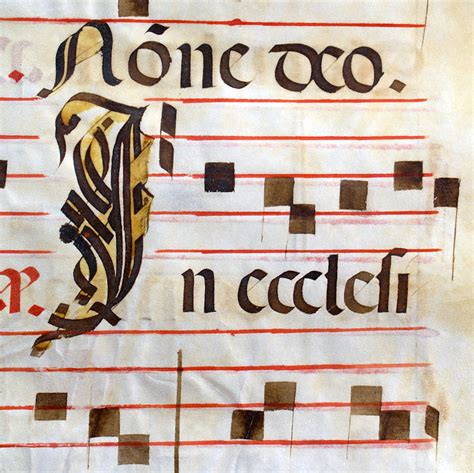 Nóne deo.
In ecclesi